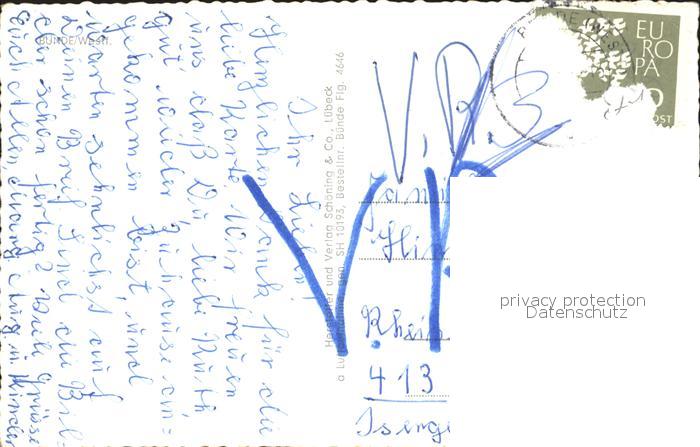 BÜNDE/WESTF.
Ihr Lieben!
Herzlichen Dank für die
liebe Karte. Wir freuen
uns daß Du, liebe Ruth
gut wieder zuhause an=
gekommen bist, und
warten sehnlichst auf
Deinen Brief. Sind die Bil=
der schon fertig? Viele Grüsse
Euch allen
Hersteller und Verlag Schöning & Co., Lübeck
gen. SH 10193, Bestellnr. Bünde Flg. 4646
EU
RO
PA
POST
V, R, 3
Rhein
413
Isenge
privacy protection
Datenschutz